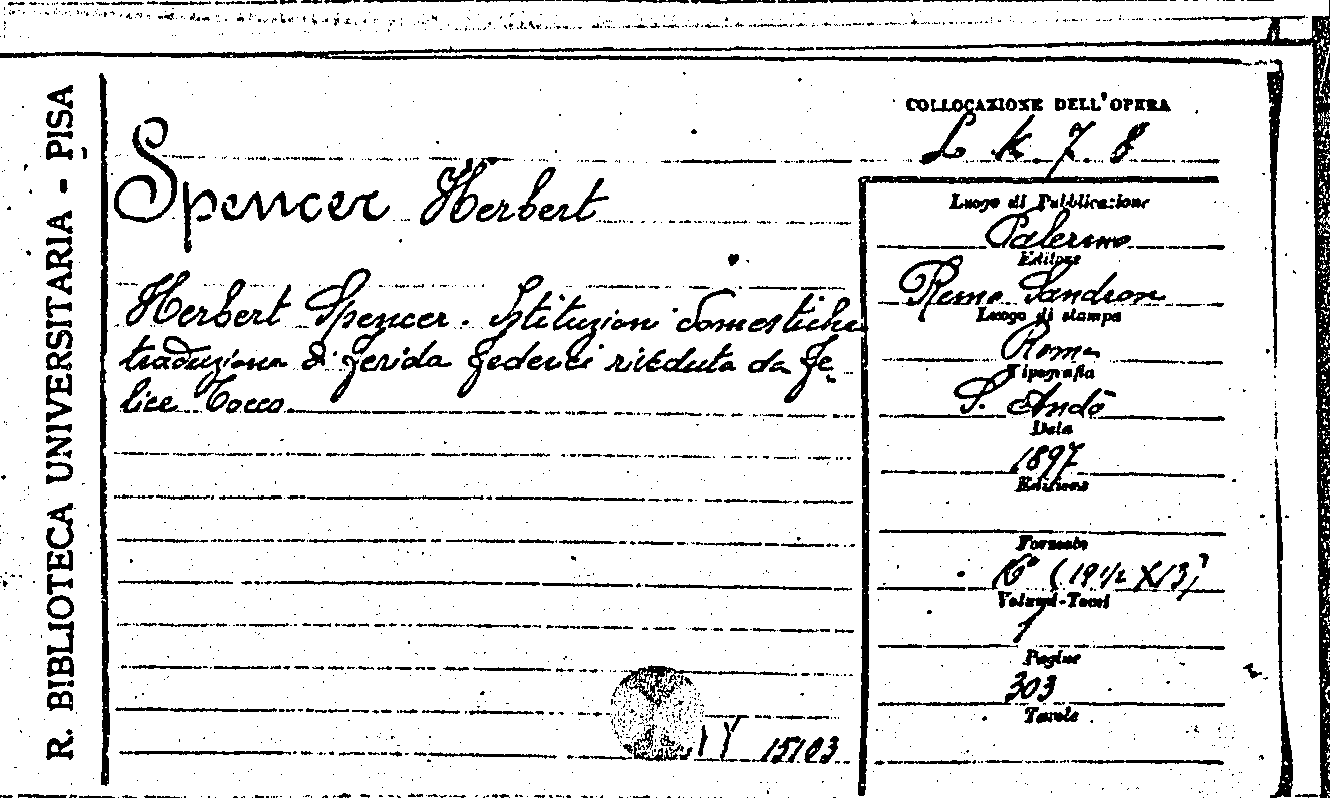 R. BIBLIOTECA UNIVERSITARIA - PISA
COLLOCAZIONE DELL'OPERA
L K. 7. 8
Spencer Herbert
Herbert Spencer. Istituzioni domestiche
traduzione di Gerida Federici riveduta da Fe-
lice Tocco
15103
Luogo di Pubblicazione
Palermo
Editore
Remo Sandron
Luogo di stampa
Roma
Tipografia
S. Andò
Data
1897
Edizione
Formato
16° (19 1/2 X 13)
Volumi-Tomi
1
Pagine
303
Tavole